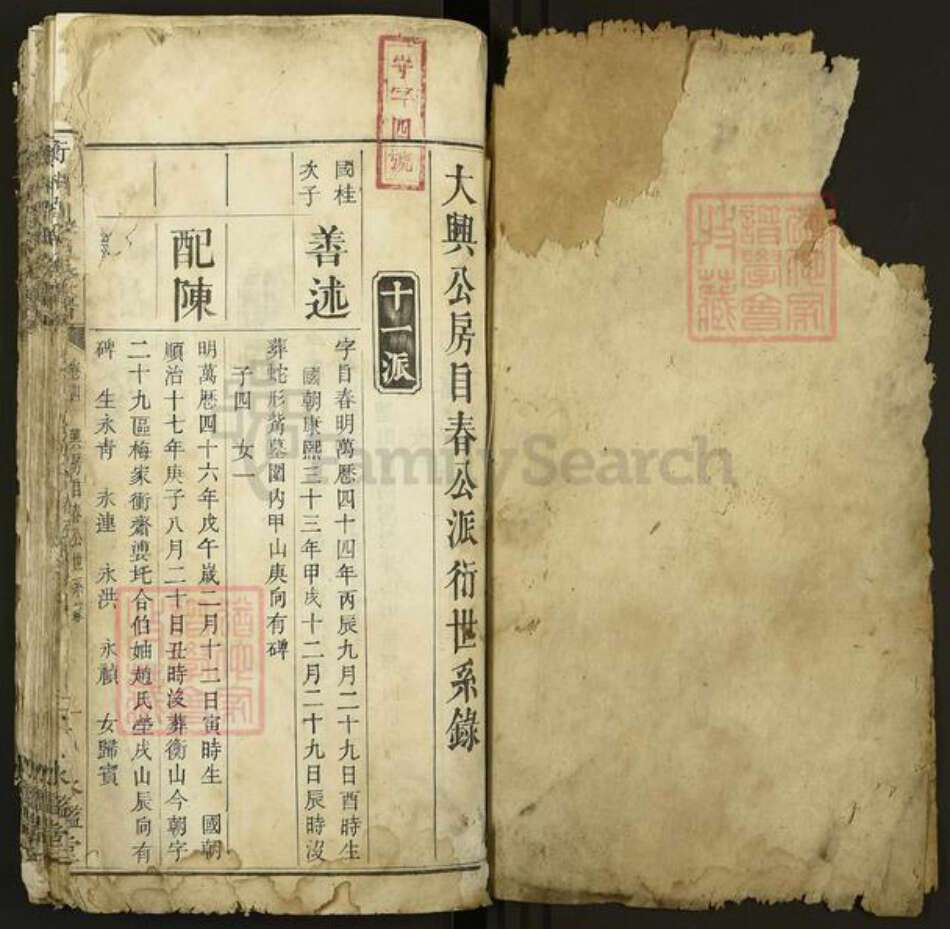 大興公房自春公派衍世系錄
字四號
十一派
國桂
次子
善述
字自春明萬歷四十四年丙辰九月二十九日酉時生
國朝康熙三十三年甲戌十二月二十九日辰時沒
葬蛇形嘴墓園内甲山庚向有碑
子四 女一
配陳
明萬歷四十六年戊午歲二月十二日寅時生 國朝
順治十七年庚子八月二十日丑時沒葬衡山今朝字
二十九區梅家衝齋婆圫合伯妯趙氏塋戌山辰向有
碑 生永青 永連 永洪 永禎 女歸賓
氷鑑堂
FamilySearch